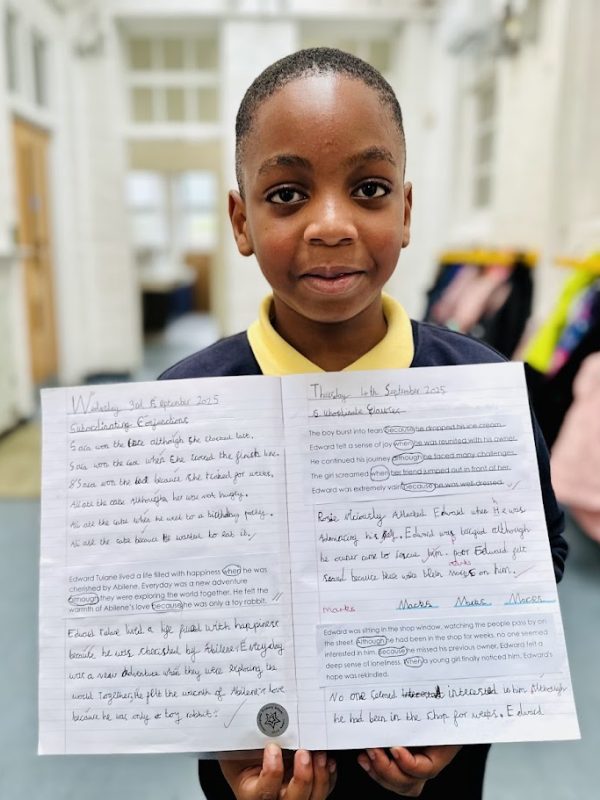 Wednesday 3rd September 2025
Subordinating Conjunctions
Sara won the race although she started last.
Sara won the race when she crossed the finish line.
Sara won the because she trained for weeks.
Ali ate the cake although he was not hungry.
Ali ate the cake when he went to a birthday party.
Ali ate the cake because he wanted to eat it.
Edward Tulane lived a life filled with happiness when he was
cherished by Abilene. Everyday was a new adventure
although they were exploring the world together. He felt the
warmth of Abilene's love because he was only a toy rabbit.
Edward Tulane lived a life filled with happiness
because he was cherished by Abilene. Everyday
was a new adventure when they were exploring the
world together. He felt the warmth of Abilene's love
because he was only a toy rabbit.
Thursday 4th September 2025
Subordinate Clauses
The boy burst into tears because he dropped his ice cream.
Edward felt a sense of joy when he was reunited with his owner.
He continued his journey although he faced many challenges.
The girl screamed when her friend jumped out in front of her.
Edward was extremely vain because he was well dressed.
Rosie viciously attacked Edward when He was
his. Edward was although
he owner came to rescue him. poor Edward felt
because there were on him.
marks
marks Marks Marks Marks
Edward was sitting in the shop window, watching the people pass by on
the street. Although he had been in the shop for weeks, no one seemed
interested in him. Because he missed his previous owner, Edward felt a
deep sense of loneliness. When a young girl finally noticed him, Edward's
hope was rekindled.
No one seemed interested in him Although
he had been in the shop for weeks. Edward